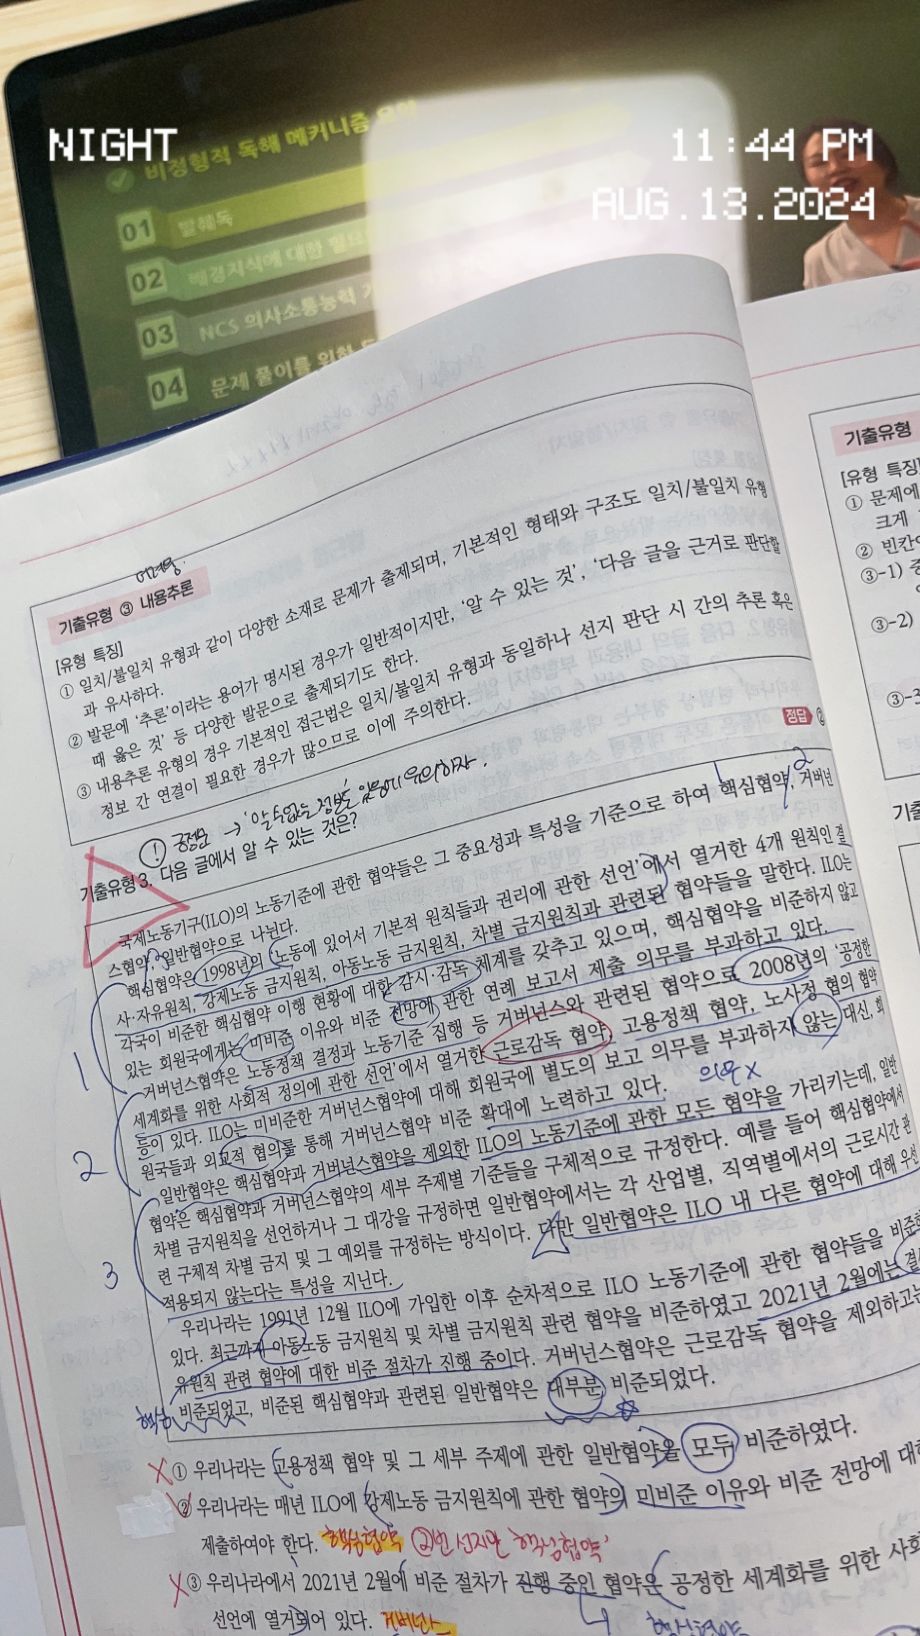 NIGHT
11:44 PM
AUG.13.2024
비정형적 독해 메커니즘 요약
01 발췌독
02 배경지식에 대한
03 NCS 의사소통능력
04 문제 풀이를 위한
어려움
기출유형 ③ 내용추론
[유형 특징]
① 일치/불일치 유형과 같이 다양한 소재로 문제가 출제되며, 기본적인 형태와 구조도 일치/불일치 유형
과 유사하다.
② 발문에 '추론'이라는 용어가 명시된 경우가 일반적이지만, '알 수 있는 것', '다음 글을 근거로 판단할
때 옳은 것' 등 다양한 발문으로 출제되기도 한다.
③ 내용추론 유형의 경우 기본적인 접근법은 일치/불일치 유형과 동일하나 선지 판단 시 간의 추론 혹은
정보 간 연결이 필요한 경우가 많으므로 이에 주의한다.
정답 ②
① 긍정문 → '알 수 없는 정보'도 있음에 유의하자.
기출유형 3. 다음 글에서 알 수 있는 것은?
국제노동기구(ILO)의 노동기준에 관한 협약들은 그 중요성과 특성을 기준으로 하여 핵심협약, 거버넌
스협약, 일반협약으로 나뉜다.
핵심협약은 1998년의 '노동에 있어서 기본적 원칙들과 권리에 관한 선언'에서 열거한 4개 원칙인 결
사·자유원칙, 강제노동 금지원칙, 아동노동 금지원칙, 차별 금지원칙과 관련된 협약들을 말한다. ILO는
각국이 비준한 핵심협약 이행 현황에 대한 감시·감독 체계를 갖추고 있으며, 핵심협약을 비준하지 않고
있는 회원국에게는 미비준 이유와 비준 전망에 관한 연례 보고서 제출 의무를 부과하고 있다.
거버넌스협약은 노동정책 결정과 노동기준 집행 등 거버넌스와 관련된 협약으로 2008년의 '공정한
세계화를 위한 사회적 정의에 관한 선언'에서 열거한 근로감독 협약, 고용정책 협약, 노사정 협의 협약
등이 있다. ILO는 미비준한 거버넌스협약에 대해 회원국에 별도의 보고 의무를 부과하지 않는 대신, 회
원국들과 외교적 협의를 통해 거버넌스협약 비준 확대에 노력하고 있다. 의무X
일반협약은 핵심협약과 거버넌스협약을 제외한 ILO의 노동기준에 관한 모든 협약을 가리키는데, 일반
협약은 핵심협약과 거버넌스협약의 세부 주제별 기준들을 구체적으로 규정한다. 예를 들어 핵심협약에서
차별 금지원칙을 선언하거나 그 대강을 규정하면 일반협약에서는 각 산업별, 직역별에서의 근로시간 관
련 구체적 차별 금지 및 그 예외를 규정하는 방식이다. 다만 일반협약은 ILO 내 다른 협약에 대해 우선
적용되지 않는다는 특성을 지닌다.
우리나라는 1991년 12월 ILO에 가입한 이후 순차적으로 ILO 노동기준에 관한 협약들을 비준
있다. 최근까지 아동노동 금지원칙 및 차별 금지원칙 관련 협약을 비준하였고 2021년 2월에는 결
유원칙 관련 협약에 대한 비준 절차가 진행 중이다. 거버넌스협약은 근로감독 협약을 제외하고는
핵심 비준되었고, 비준된 핵심협약과 관련된 일반협약은 대부분 비준되었다.
1
2
3
① 우리나라는 고용정책 협약 및 그 세부 주제에 관한 일반협약을 모두 비준하였다.
② 우리나라는 매년 ILO에 강제노동 금지원칙에 관한 협약의 미비준 이유와 비준 전망에 대한
제출하여야 한다. 핵심협약 ②번 선지만 '핵심협약'
③ 우리나라에서 2021년 2월에 비준 절차가 진행 중인 협약은 공정한 세계화를 위한 사회
선언에 열거되어 있다. 거버넌스 핵심협약
기출유형
[유형 특징]
① 문제에
크게
② 빈칸
③-1)
③-2)
③-3
기출